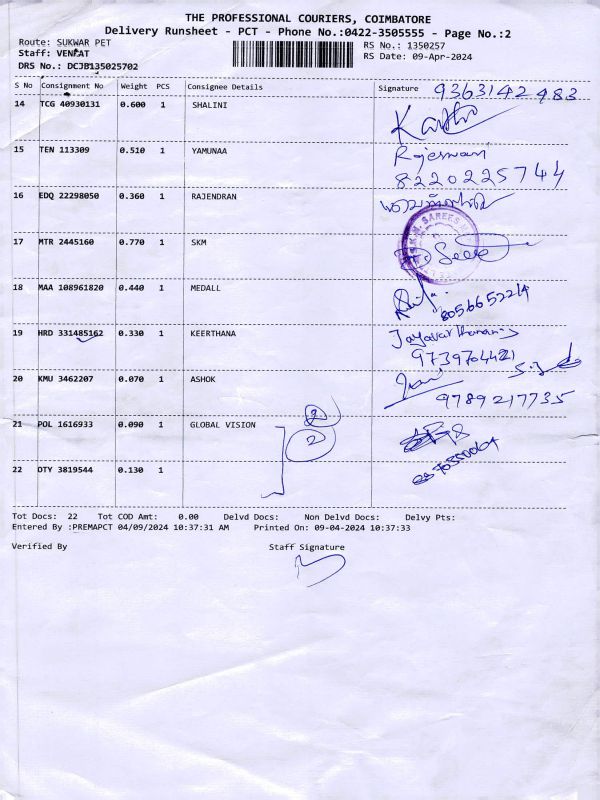 THE PROFESSIONAL COURIERS, COIMBATORE
Delivery Runsheet - PCT - Phone No.:0422-3505555 - Page No.:2
Route: SUKWAR PET RS No.: 1350257
Staff: VENKAT RS Date: 09-Apr-2024
DRS No.: DCJB135025702
S No Consignment No Weight PCS Consignee Details Signature 9363142983
14 TCG 40930131 0.600 1 SHALINI
15 TEN 113309 0.510 1 YAMUNAA Rajeswari
8220225744
16 EDQ 22298050 0.360 1 RAJENDRAN
17 MTR 2445160 0.770 1 SKM
18 MAA 108961820 0.440 1 MEDALL 8056652214
19 HRD 331485162 0.330 1 KEERTHANA
9739704421
20 KMU 3462207 0.070 1 ASHOK
9789217735
21 POL 1616933 0.090 1 GLOBAL VISION 2
2
22 OTY 3819544 0.130 1
Tot Docs: 22 Tot COD Amt: 0.00 Delvd Docs: Non Delvd Docs: Delvy Pts:
Entered By :PREMAPCT 04/09/2024 10:37:31 AM Printed On: 09-04-2024 10:37:33
Verified By Staff Signature